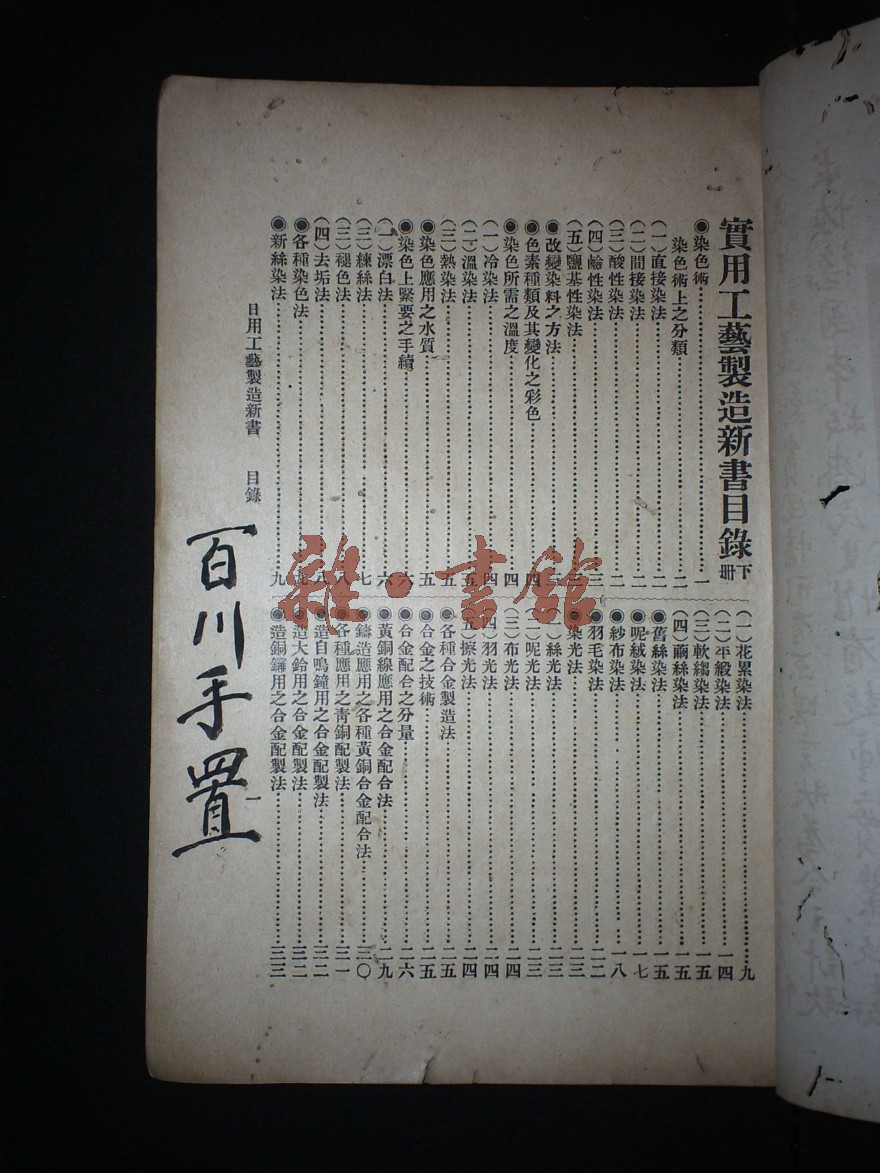 實用工藝製造新書目錄 下冊
◉染色術 一
染色術上之分類 二
(一)直接染法 二
(二)間接染法 二
(三)酸性染法 二
(四)鹼性染法 三
(五)鹽基性染法 三
◉改變染料之方法
◉色素種類及其變化之彩色 四
◉染色所需之溫度 四
(一)冷染法 四
(二)溫染法 五
(三)熱染法 五
◉染色應用之水質 五
◉染色上緊要之手續 六
(一)漂白法 六
(二)練絲法 七
(三)褪色法 八
(四)去垢法 八
◉各種染色法 九
◉新絲染法 九
(一)花累染法 九
(二)平緞染法 一四
(三)軟縐染法 一五
(四)繭絲染法 一五
◉舊絲染法 一五
◉呢絨染法 一七
◉紗布染法 一八
◉羽毛染法 二二
◉染光法 二三
(一)絲光法 二三
(二)呢光法 二三
(三)布光法 二四
(四)羽光法 二四
(五)擦光法 二四
◉各種合金製造法 二五
◉合金之技術 二五
◉合金配合之分量 二六
◉黃銅線應用之合金配合法 二九
◉鑄造應用之各種黃銅合金配合法 三〇
◉各種應用之青銅配製法 三一
◉造自鳴鐘用之合金配製法 三二
◉造大鈴用之合金配製法 三二
◉造銅鑼用之合金配製法 三三
日用工藝製造新書 目錄 一
百川手置
雜·書館